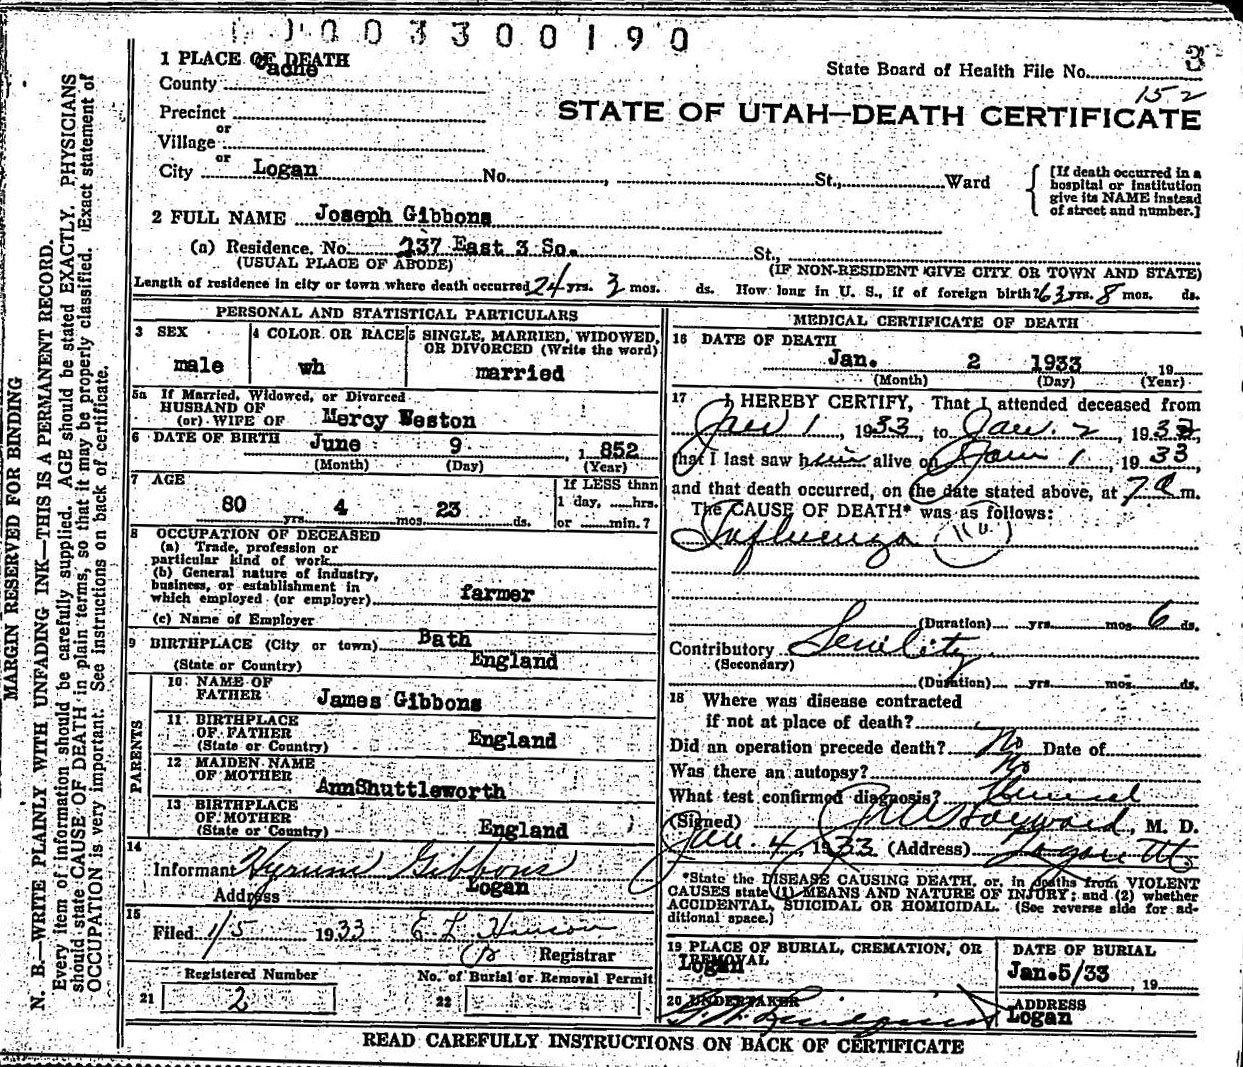 0 0 0 3 3 0 0 1 9 0
1 PLACE OF DEATH
County Cache
State Board of Health File No. 3
152
Precinct
or
Village
STATE OF UTAH—DEATH CERTIFICATE
or
City Logan No. , St., Ward
[If death occurred in a
hospital or institution
give its NAME instead
of street and number.]
2 FULL NAME Joseph Gibbons
(a) Residence. No. 237 East 3 So. St.,
(USUAL PLACE OF ABODE) (IF NON-RESIDENT GIVE CITY OR TOWN AND STATE)
Length of residence in city or town where death occurred 24 yrs. 3 mos. ds. How long in U. S., if of foreign birth? 63 yrs. 8 mos. ds.
PERSONAL AND STATISTICAL PARTICULARS
3 SEX
male
4 COLOR OR RACE
wh
5 SINGLE, MARRIED, WIDOWED,
OR DIVORCED (Write the word)
married
5a If Married, Widowed, or Divorced
HUSBAND OF
(or) WIFE OF Mercy Weston
6 DATE OF BIRTH June 9 , 1 852
(Month) (Day) (Year)
7 AGE
80 yrs. 4 mos. 23 ds.
If LESS than
1 day, hrs.
or min.?
8 OCCUPATION OF DECEASED
(a) Trade, profession or
particular kind of work
(b) General nature of industry,
business, or establishment in
which employed (or employer) farmer
(c) Name of Employer
9 BIRTHPLACE (City or town) Bath
(State or Country) England
PARENTS
10 NAME OF
FATHER James Gibbons
11 BIRTHPLACE
OF FATHER
(State or Country) England
12 MAIDEN NAME
OF MOTHER
AnnShuttleworth
13 BIRTHPLACE
OF MOTHER
(State or Country) England
14
Informant Hyrum Gibbons
Address Logan
15
Filed 1/5 1933 E L
Registrar
Registered Number
21 2
No. of Burial or Removal Permit
22
MEDICAL CERTIFICATE OF DEATH
16 DATE OF DEATH
Jan. 2 1933 19
(Month) (Day) (Year)
17 I HEREBY CERTIFY, That I attended deceased from
Jan 1 , 1933, to Jan. 2 , 1933,
that I last saw him alive on Jan 1 , 1933
and that death occurred, on the date stated above, at 7 a m.
The CAUSE OF DEATH* was as follows:
Influenza
(Duration) yrs. mos. 6 ds.
Contributory Senility
(Secondary)
(Duration) yrs. mos. ds.
18 Where was disease contracted
if not at place of death?
Did an operation precede death? No Date of
Was there an autopsy? No
What test confirmed diagnosis?
(Signed) Hayward, M. D.
Jan. 4, 1933 (Address) Logan Ut
*State the DISEASE CAUSING DEATH, or, in deaths from VIOLENT
CAUSES state (1) MEANS AND NATURE OF INJURY; and (2) whether
ACCIDENTAL, SUICIDAL OR HOMICIDAL. (See reverse side for ad-
ditional space.)
19 PLACE OF BURIAL, CREMATION, OR
REMOVAL
Logan
DATE OF BURIAL
Jan.5/33 , 19
20 UNDERTAKER
ADDRESS
Logan
READ CAREFULLY INSTRUCTIONS ON BACK OF CERTIFICATE
MARGIN RESERVED FOR BINDING
N. B.—WRITE PLAINLY WITH UNFADING INK—THIS IS A PERMANENT RECORD.
Every item of information should be carefully supplied. AGE should be stated EXACTLY. PHYSICIANS
should state CAUSE OF DEATH in plain terms, so that it may be properly classified. Exact statement of
OCCUPATION is very important. See instructions on back of certificate.